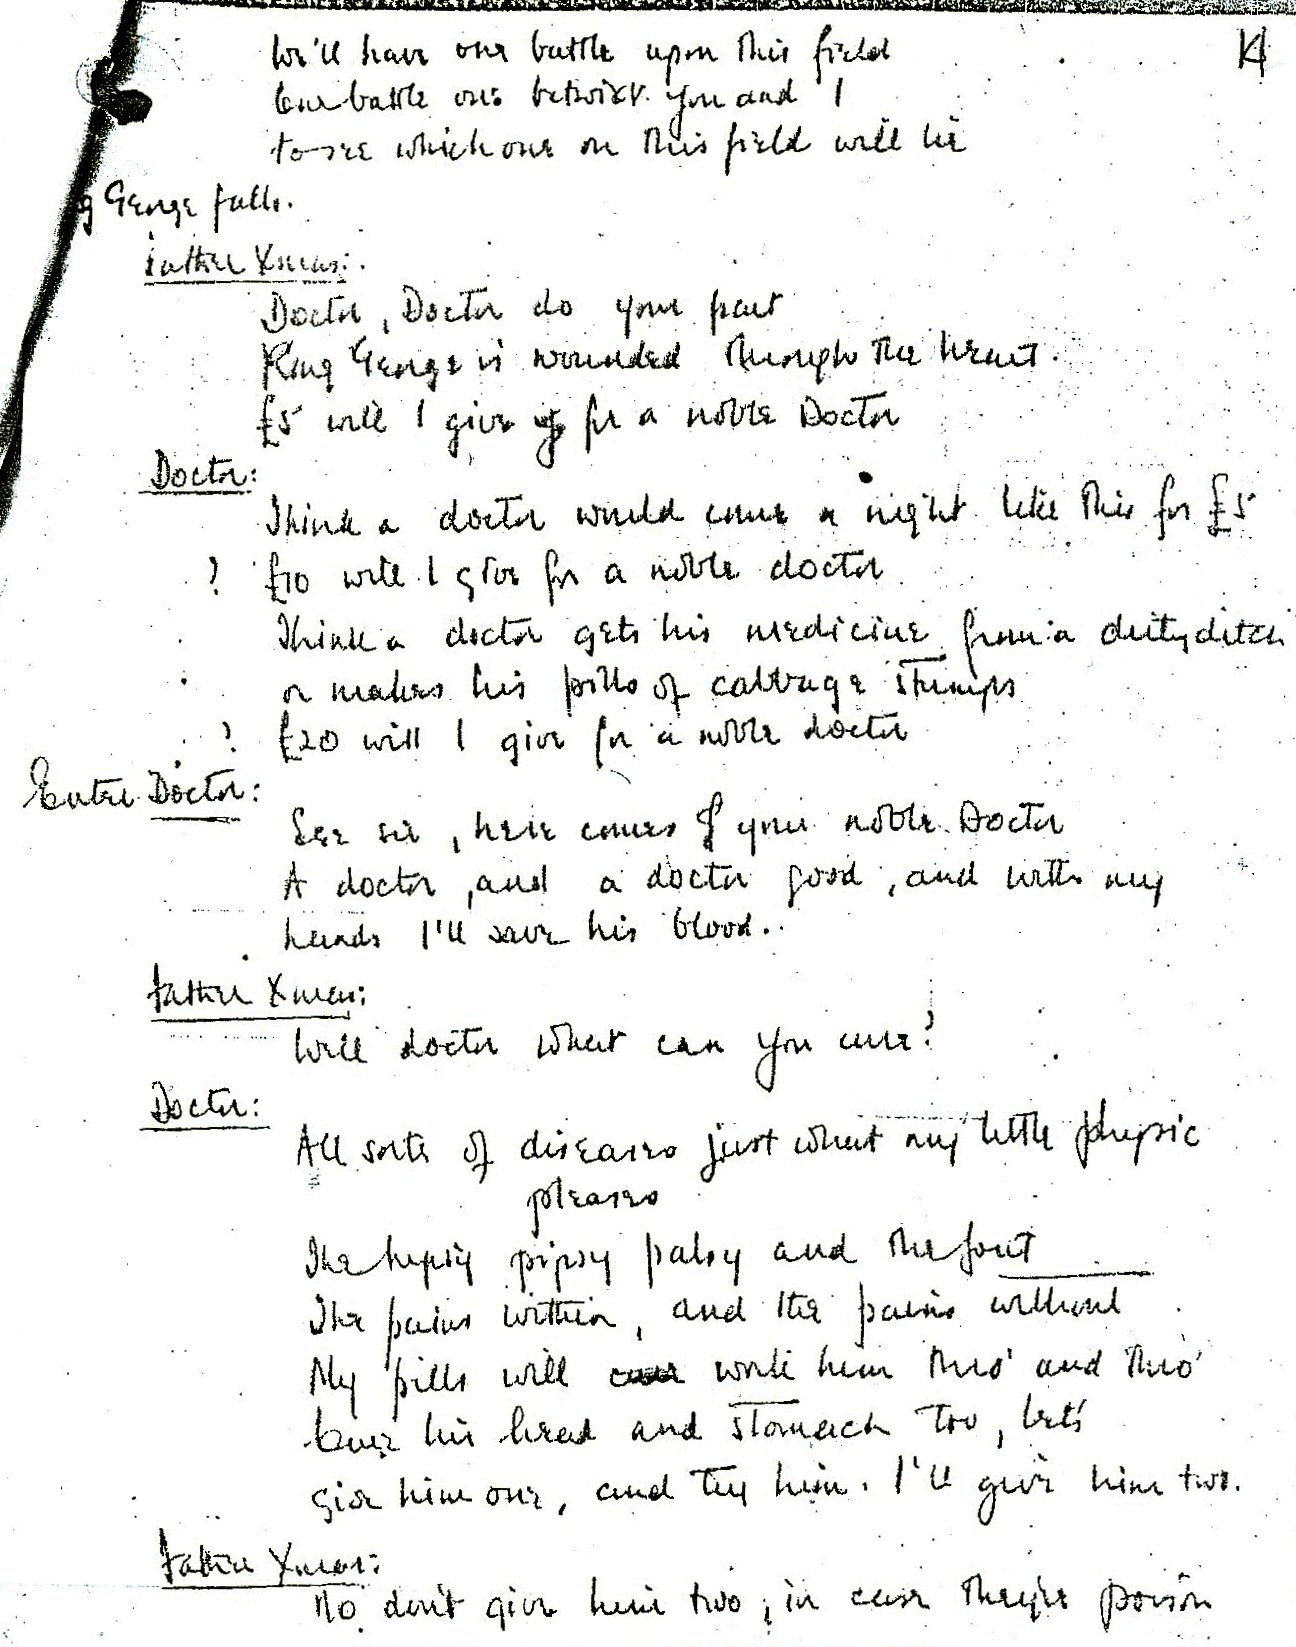 14
We'll have one battle upon this field
One battle one betwixt you and I
to see which one on this field will lie
g George falls.
Father Xmas:
Doctor, Doctor do your part
King George is wounded through the heart.
£5 will I give for a noble Doctor
Doctor:
Think a doctor would come a night like this for £5
? £10 will I give for a noble doctor
Think a doctor gets his medicine from a dirty ditch
or makes his pills of cabbage stumps
? £20 will I give for a noble doctor
Enter Doctor:
See sir, here comes your noble Doctor
A doctor, and a doctor good, and with my
hands I'll save his blood.
Father Xmas:
Well doctor what can you cure?
Doctor:
All sorts of diseases just what my little physic
pleases
The hipsy pipsy palsy and the gout
The pains within, and the pains without
My pills will cure work him thro' and thro'
Cure his head and stomach too, let's
give him one, and try him. I'll give him two.
Father Xmas:
No don't give him two, in case they're poison